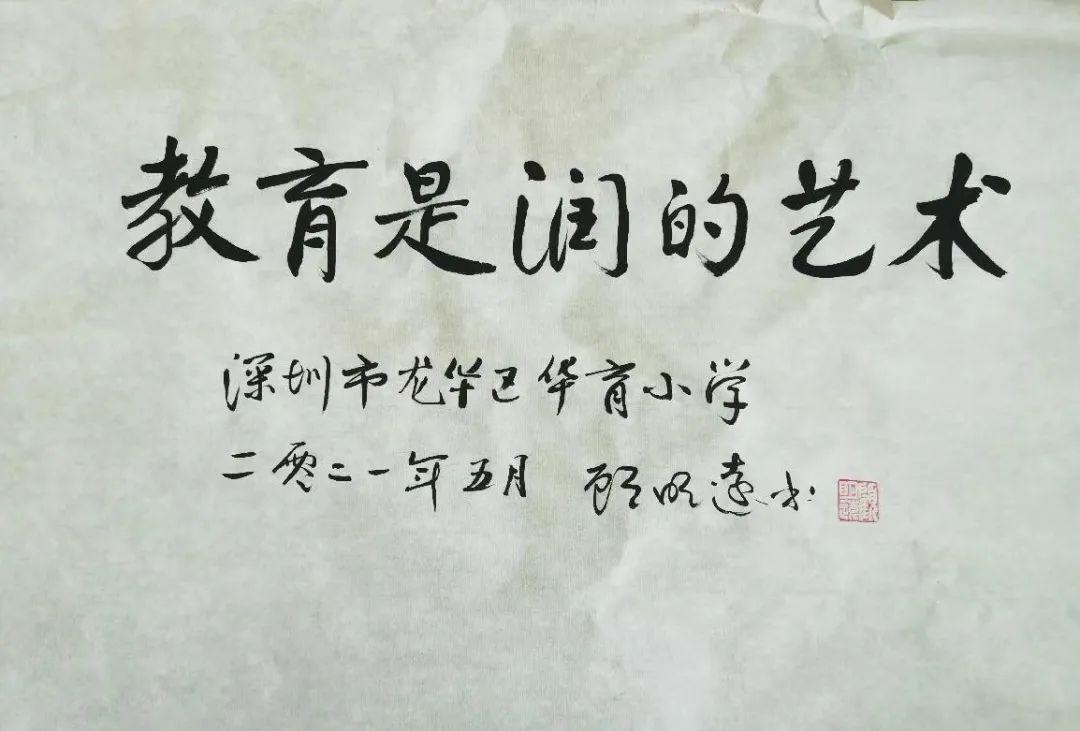 教育是润的艺术
深圳市龙华区华育小学
二零二一年五月 顾明远书